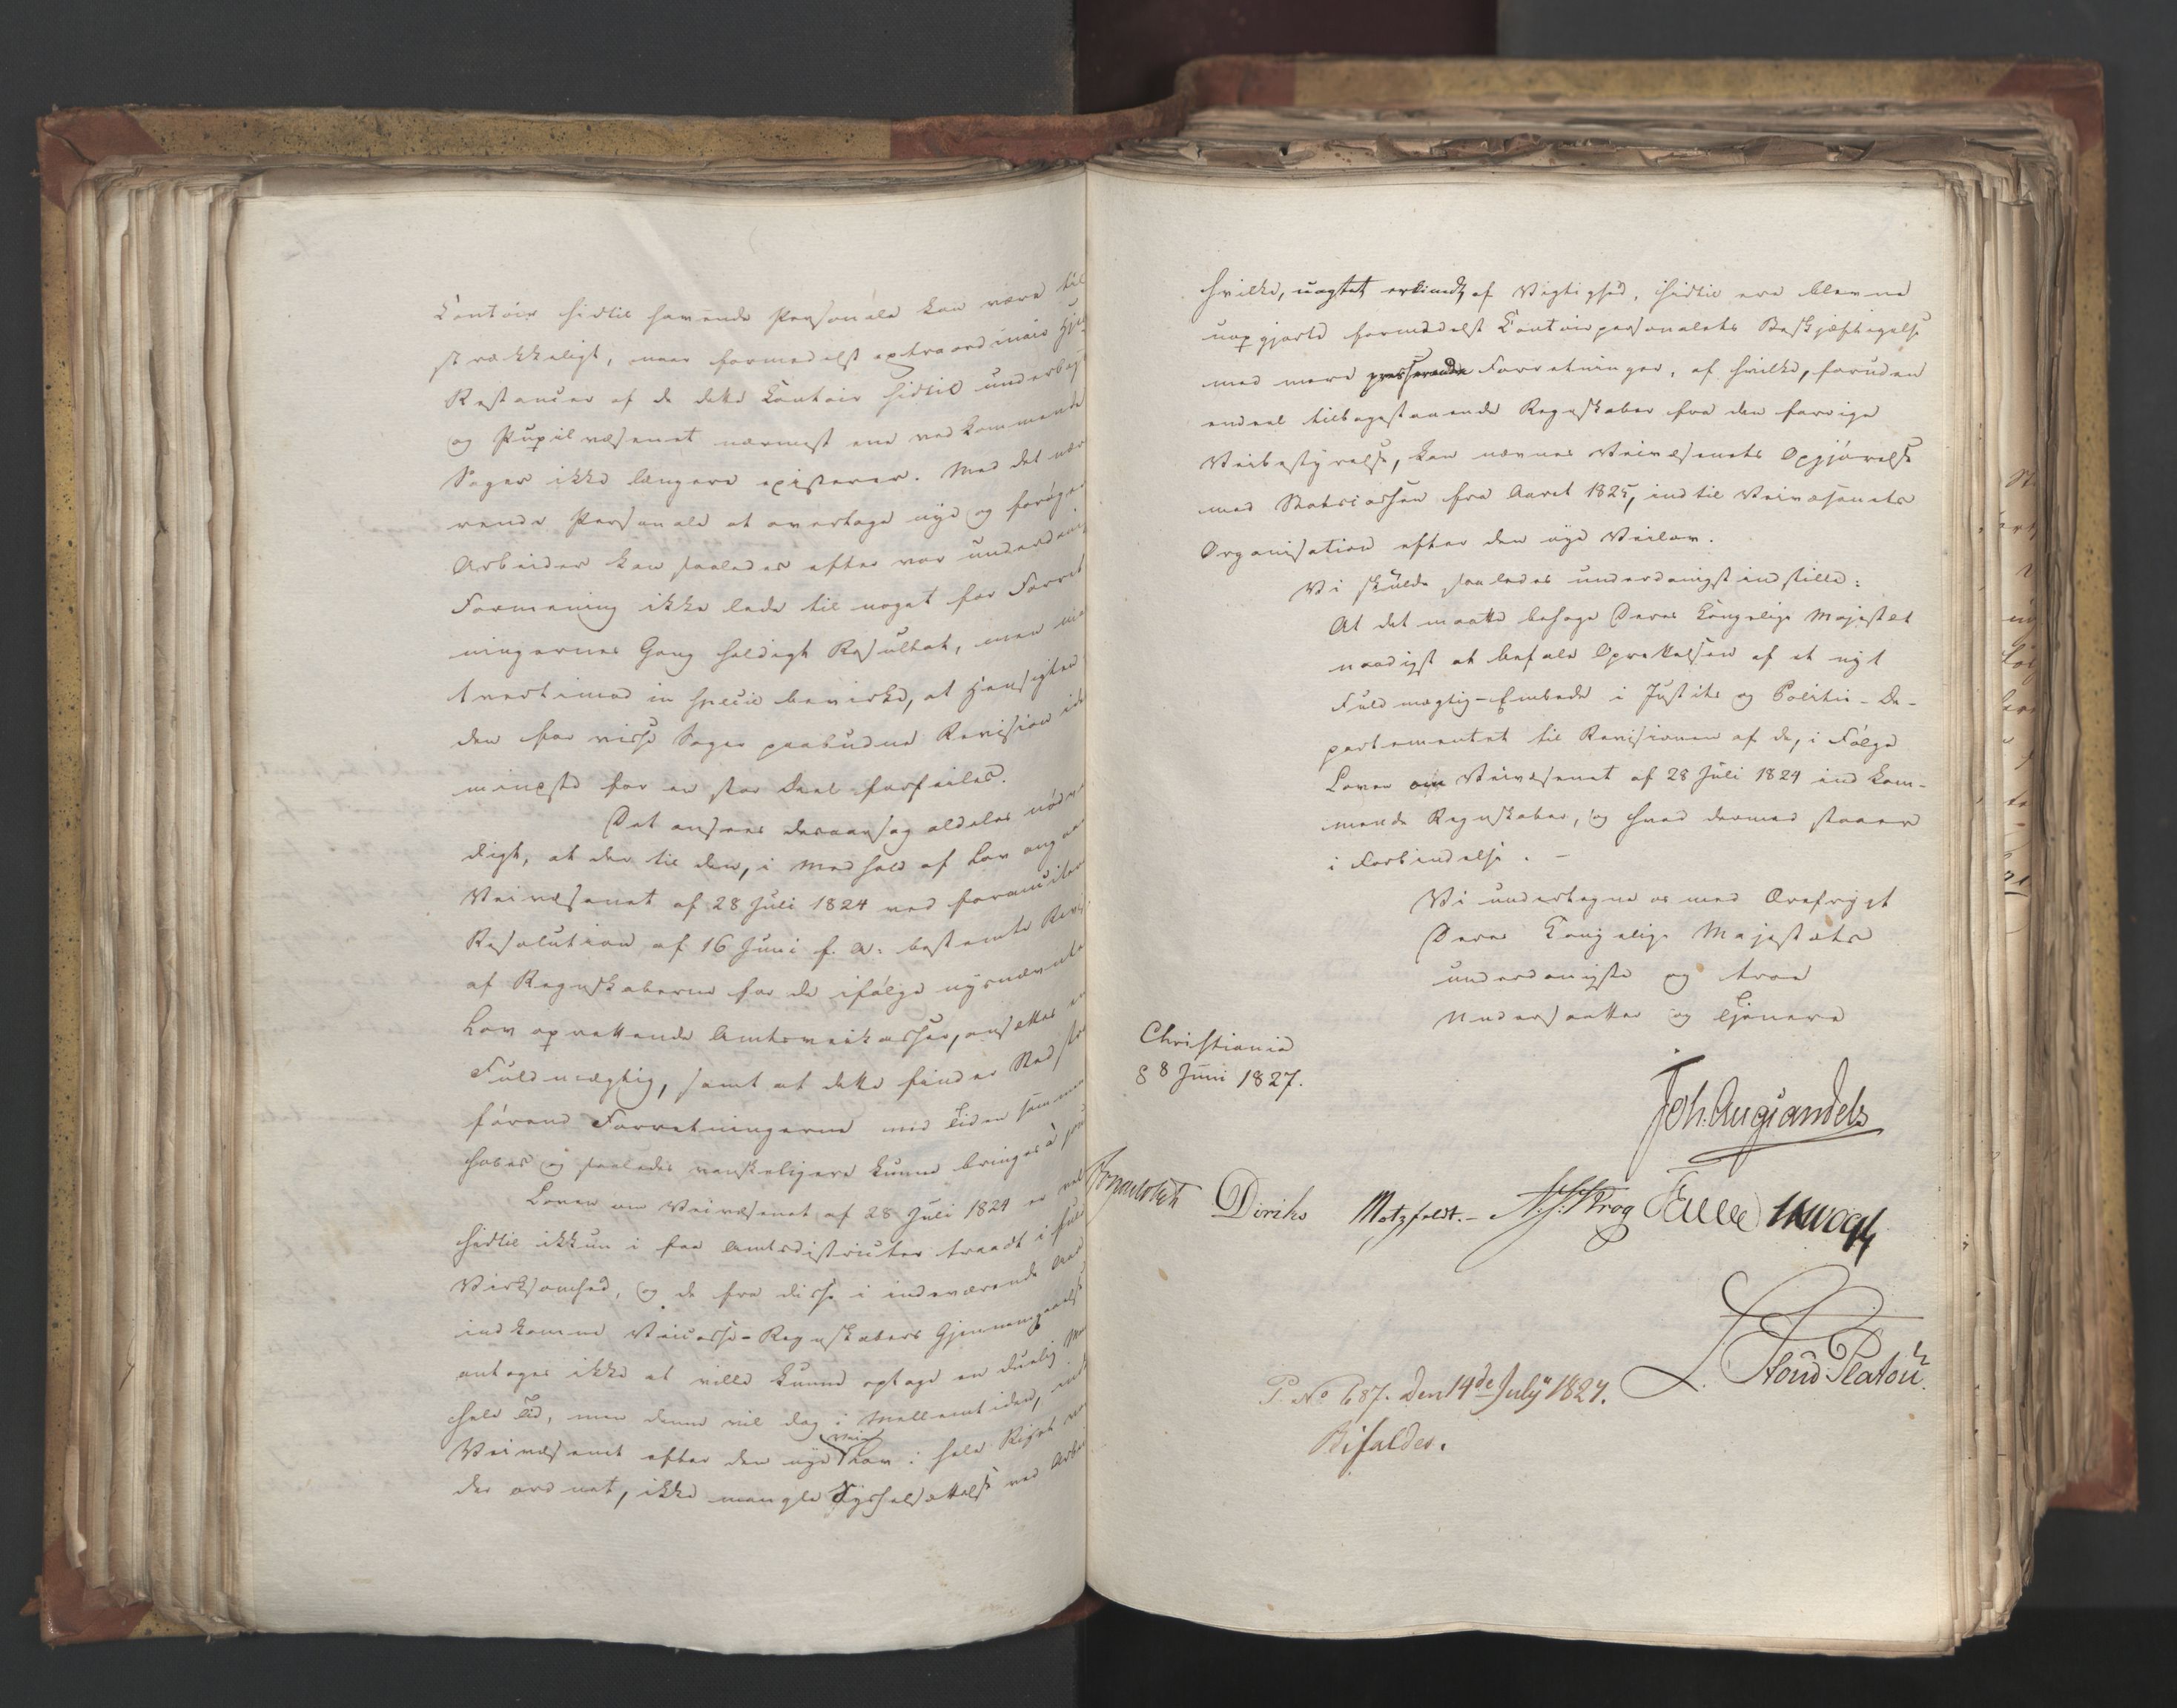 Contoir hidtil havende Personale kan være til
strækkeligt, naar formedelst extraordinair Hjelp
Restancer af de dette Contoir hidtil underlagte
og Pupilvæsenet nærmest eene vedkommende
Sager ikke længere existerer. Med det nær
rende Personale at overtage nye og forøgede
Arbeider kan saaledes efter vor underdanig
Formening ikke lede til noget for Forret
ningernes Gang heldigt Resultat, men maa
tvertimod in specie bevirke, at Hensigten
den for visse Sager paabudne Revision id
mindste for en stor Deel forfeiles.
Det ansees desaarsag aldeles nødv
digt, at der til den, i Medhold af Lov angaa
Veivæsenet af 28 Juli 1824 ved foranciterte
Resolution af 16 Juni f. A. bestemte Revis
af Regnskaberne for de ifølge nysnævnte
Lov oprettende Amtsveikasser, ansættes en
Fuldmægtig, samt at dette finder Sted
førend Forretningerne med Tiden sammen
hobes og saaledes vanskeligere kunne bringes à jour
Loven om Veivæsenet af 28 Juli 1824 er vel
hidtil ikkun i faa Amtsdistricter traadt i fuld
Virksomhed, og de fra disse i indeværende Aar
indkomne Veicasse-Regnskabers Gjennemgaaelse
antages ikke at ville kunne optage en duelig Ma
hele Tid, men denne vil dog i Mellemtiden, ind
Veivæsenet efter den nye Vei Lov i hele Riget vor
der ordnet, ikke mangle Sysselsættelse ved Arbei
hvilke, uagtet erkiendt af Vigtighed, hidtil ere blevne
uopgjorte formedelst Contoirpersonalets Beskjæftigelse
med mere presserende Forretninger, af hvilke, foruden
endeel tilbagestaaende Regnskaber fra den forrige
Veibestyrelse, kan nævnes Veivæsenets Opgjørelse
med Statscassen fra Aaret 1825, indtil Veivæsenets
Organisation efter den nye Veilov.
Vi skulde saaledes underdanigst indstille:
At det maatte behage Deres Kongelige Majestæt
naadigst at befale Oprettelsen af et nyt
Fuldmægtig-Embede i Justits og Politie-De-
partementet til Revisionen af de, i Følge
Loven om Veivæsenet af 28 Juli 1824 indkom-
mende Regnskaber, og hvad dermed staaer
i Forbindelse. -
Vi undertegne os med Ærefrygt
Deres Kongelige Majestæts
underdanigste og troe
Undersaatter og Tjenere
Christiania
8 Juni 1827.
Joh. Aug Sandels
Diriks Motzfeldt. - Krog Fasting
L. Stoud Platou
P. No 687. Den 14de July 1827.
Bifaldes.